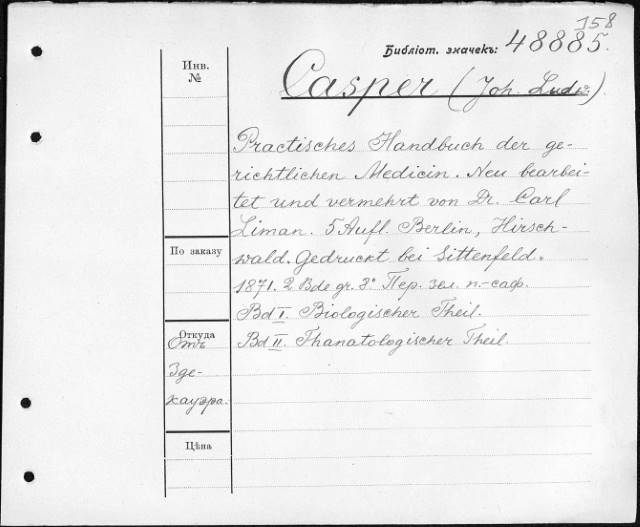 158
Библіот. значекъ: 48885.
Инв.
№
Casper (Joh. Ludw.).
Practisches Handbuch der ge-
richtlichen Medicin. Neu bearbei-
tet und vermehrt von Dr. Carl
Liman. 5 Aufl. Berlin, Hirsch-
wald. Gedruckt bei Sittenfeld.
1871. 2 Bde gr. 8° Пер. зел. п.-саф.
Bd I. Biologischer Theil.
Bd II. Thanatologischer Theil.
По заказу
Откуда
Отъ
Зде-
кауэра.
Цѣна